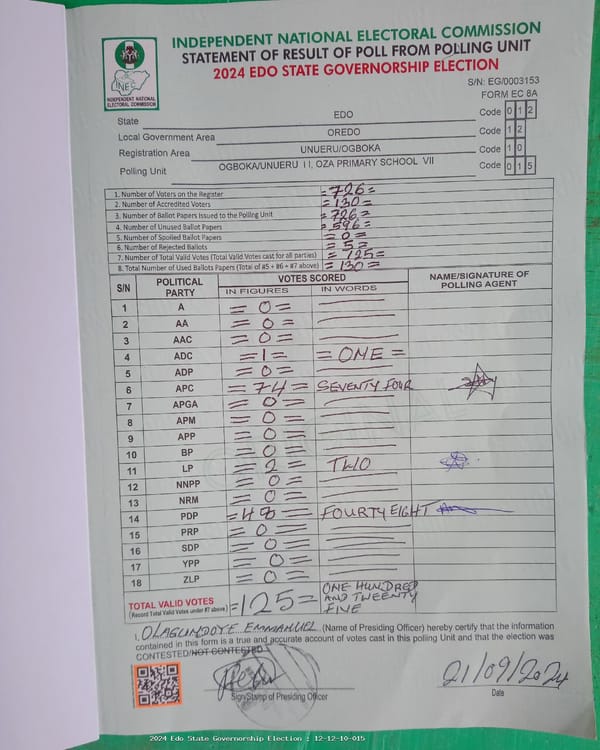 INDEPENDENT NATIONAL ELECTORAL COMMISSION
STATEMENT OF RESULT OF POLL FROM POLLING UNIT
2024 EDO STATE GOVERNORSHIP ELECTION
INEC
INDEPENDENT NATIONAL ELECTORAL COMMISSION
S/N: EG/0003153
FORM EC 8A
State EDO Code 0 1 2
Local Government Area OREDO Code 1 2
Registration Area UNUERU/OGBOKA Code 1 0
Polling Unit OGBOKA/UNUERU I I, OZA PRIMARY SCHOOL VII Code 0 1 5
1. Number of Voters on the Register =726=
2. Number of Accredited Voters =130=
3. Number of Ballot Papers Issued to the Polling Unit =726=
4. Number of Unused Ballot Papers =596=
5. Number of Spoiled Ballot Papers =0=
6. Number of Rejected Ballots =5=
7. Number of Total Valid Votes (Total Valid Votes cast for all parties) =125=
8. Total Number of Used Ballots Papers (Total of #5 + #6 + #7 above) =130=
S/N POLITICAL PARTY VOTES SCORED NAME/SIGNATURE OF POLLING AGENT
IN FIGURES IN WORDS
1 A =0=
2 AA =0=
3 AAC =0=
4 ADC =1= =ONE=
5 ADP =0=
6 APC =74= SEVENTY FOUR
7 APGA =0=
8 APM =0=
9 APP =0=
10 BP =0=
11 LP =2= TWO
12 NNPP =0=
13 NRM =0=
14 PDP =48= FOURTY EIGHT
15 PRP =0=
16 SDP =0=
17 YPP =0=
18 ZLP =0=
TOTAL VALID VOTES =125= ONE HUNDRED AND TWEENTY FIVE
(Record Total Valid Votes under #7 above)
I, OLAGUNDOYE EMMANUEL (Name of Presiding Officer) hereby certify that the information
contained in this form is a true and accurate account of votes cast in this polling Unit and that the election was
CONTESTED/NOT CONTESTED
21/09/2024
Sign/Stamp of Presiding Officer
Date
2024 Edo State Governorship Election : 12-12-10-015